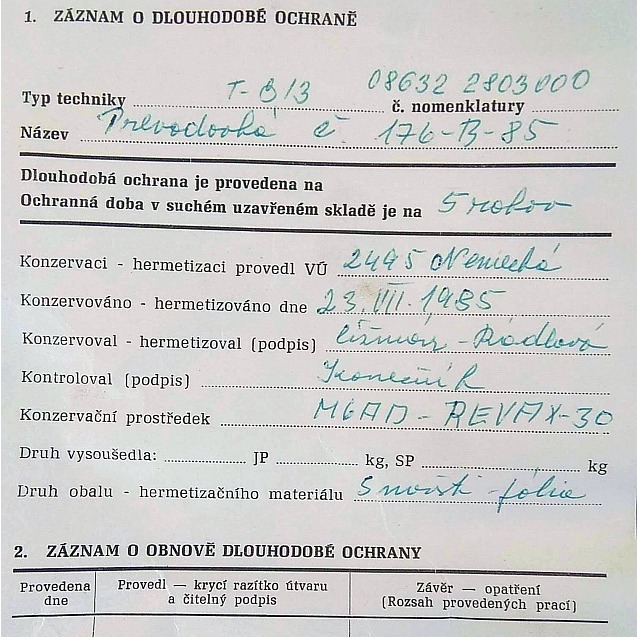 1. ZÁZNAM O DLOUHODOBÉ OCHRANĚ
Typ techniky T-813 č. nomenklatury 08632 2803000
Název Prevodovka č. 176-B-85
Dlouhodobá ochrana je provedena na
Ochranná doba v suchém uzavřeném skladě je na 5 rokov
Konzervaci - hermetizaci provedl VÚ 2495 Nemecká
Konzervováno - hermetizováno dne 23. VII. 1985
Konzervoval - hermetizoval (podpis) Čižmár, Rádlová
Kontroloval (podpis) Konečník
Konzervační prostředek MGAD - REVAX-30
Druh vysoušedla: JP kg, SP kg
Druh obalu - hermetizačního materiálu fólie
2. ZÁZNAM O OBNOVĚ DLOUHODOBÉ OCHRANY
Provedena dne
Provedl — krycí razítko útvaru a čitelný podpis
Závěr — opatření (Rozsah provedených prací)